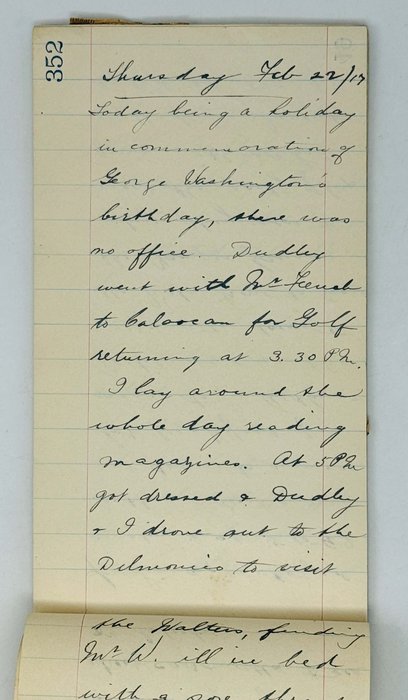 352
Thursday Feb 22/17
Today being a holiday
in commemoration of
George Washington's
birthday, there was
no office. Dudley
went with Mr
to Caloocan for Golf
returning at 3.30 PM.
I lay around the
whole day reading
magazines. At 5 PM
got dressed & Dudley
& I drove out to the
Delmonico to visit
the Walters, finding
Mr W. ill in bed
with a sore